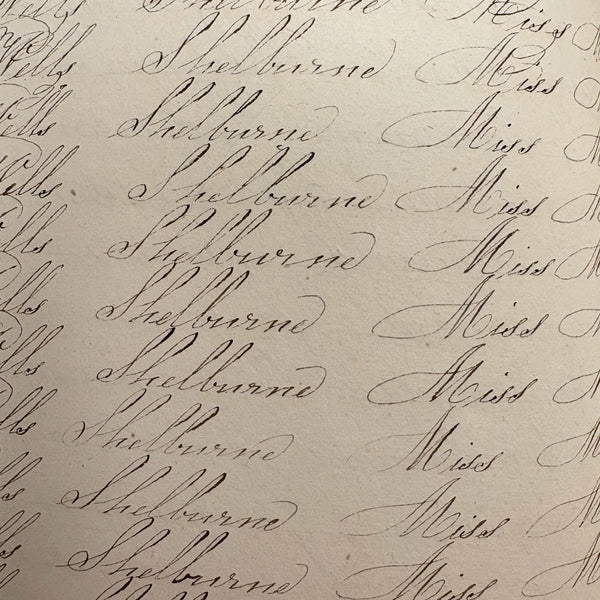 Wells Shelburne Miss
Wells Shelburne Miss
Wells Shelburne Miss
Wells Shelburne Miss
ells Shelburne Miss
ells Shelburne Miss
ells Shelburne Miss
lls Shelburne Miss
ls Shelburne Miss
s Shelburne Miss